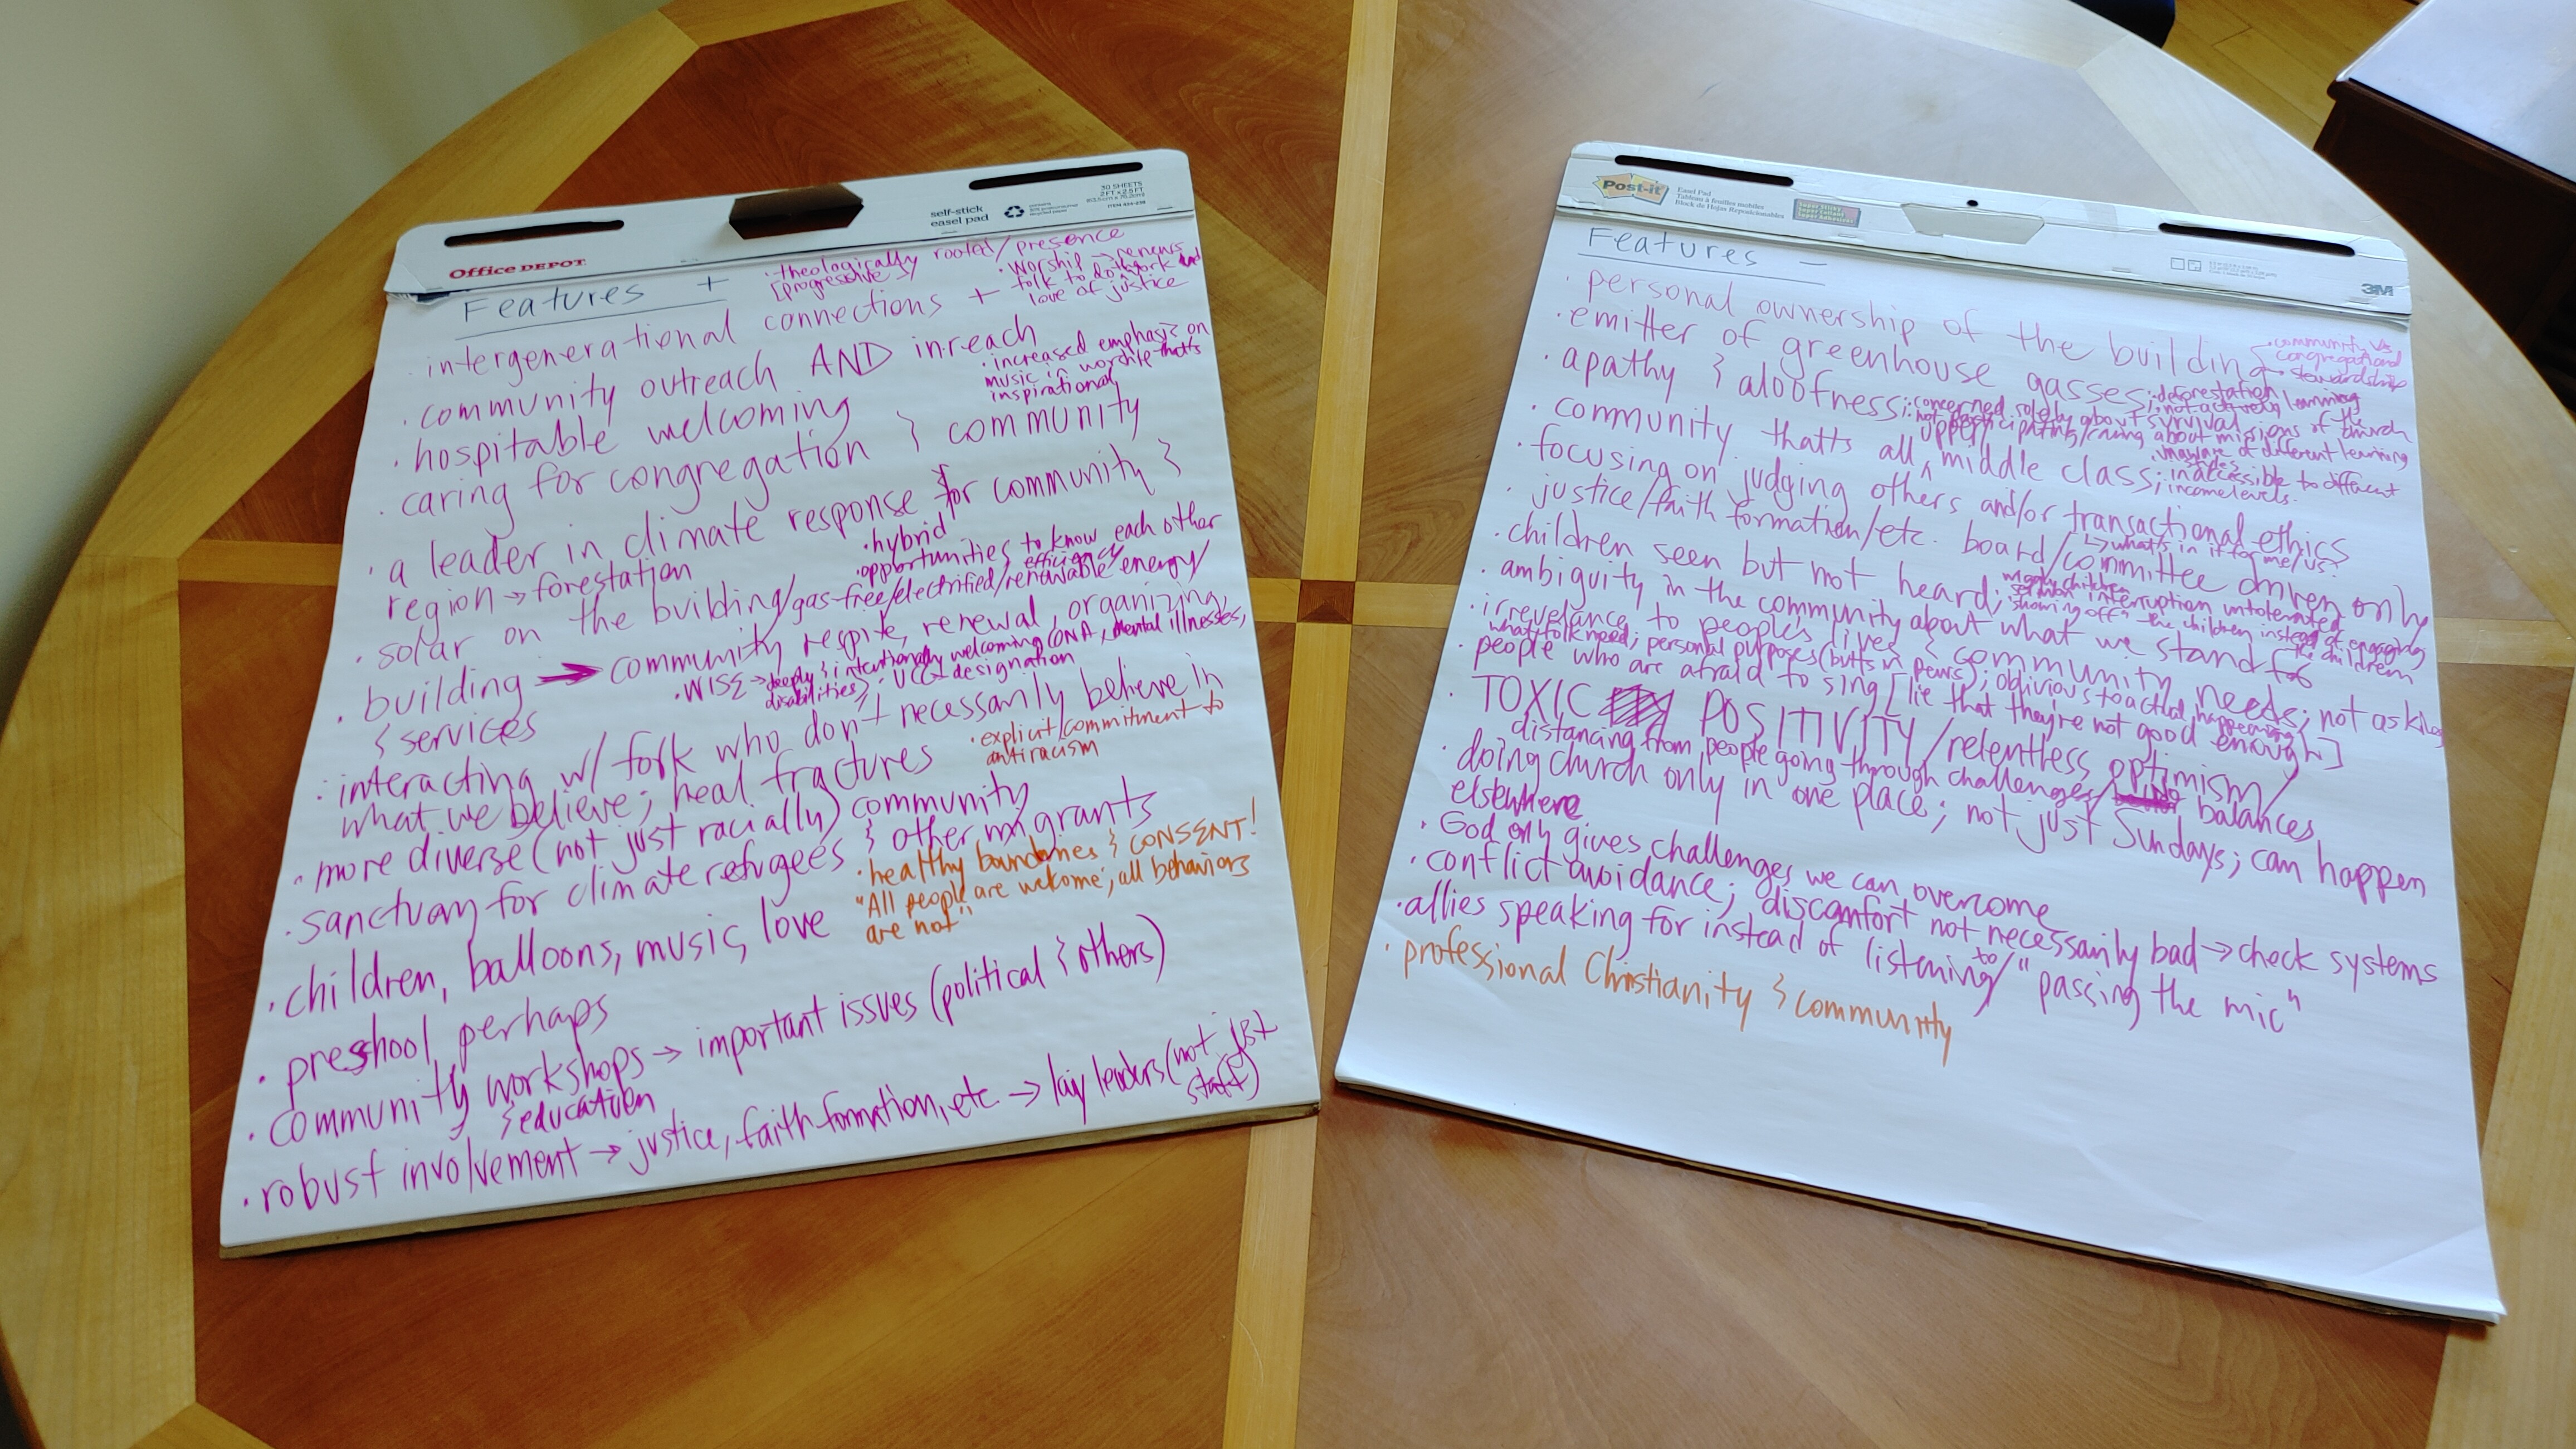 Office DEPOT
self-stick
easel pad
30 SHEETS
2 FT x 2.5 FT
Features +
· theologically rooted/presence
[progressive]
· worship → renews
folk to do work and
love of justice
· intergenerational connections +
· community outreach AND in-reach
· increased emphasis on
music in worship that's
inspirational
· hospitable welcoming
· caring for congregation & community
· a leader in climate response for community &
region → forestation
· hybrid
· opportunities to know each other
· solar on the building/gas-free/electrified/renewable energy/
efficiency
· building → community respite, renewal, organizing,
& services
· WISE → deeply & intentionally welcoming (ONA, mental illnesses,
disabilities); UCC designation
· interacting w/ folk who don't necessarily believe in
what we believe; heal fractures
· explicit commitment to
antiracism
· more diverse (not just racially) community
· sanctuary for climate refugees & other migrants
· healthy boundaries & CONSENT!
"All people are welcome; all behaviors
are not"
· children, balloons, music, love
· preshool, perhaps
· community workshops → important issues (political & others)
& education
· robust involvement → justice, faith formation, etc → lay leaders (not just
staff)
Post-it
Easel Pad
Tableau à feuilles mobiles
Block de Hojas Reposicionables
3M
Features -
· personal ownership of the building
· community vs
congregational
stewardship
· emitter of greenhouse gasses; deforestation
· apathy & aloofness; concerned solely about survival; not actively learning
not participating/caring about missions of the church
· unaware of different learning
styles
· community that's all middle class; inaccessible to different
upper
income levels.
· focusing on judging others and/or transactional ethics
↳ what's in it for me/us?
· justice/faith formation/etc. board/committee driven only
· children seen but not heard; sermon interruption untolerated
"showing off" the children instead of engaging
the children
· ambiguity in the community about what we stand for
· irrevelance to people's lives & community needs; not asking
what folk need; personal purposes (butts in pews); oblivious to actual happening
· people who are afraid to sing [lie that they're not good enough]
· TOXIC POSITIVITY/relentless optimism/
distancing from people going through challenges/ balances
· doing church only in one place; not just Sundays; can happen
elsewhere
· God only gives challenges we can overcome
· conflict avoidance; discomfort not necessarily bad → check systems
· allies speaking for instead of listening to/"passing the mic"
· professional Christianity & community